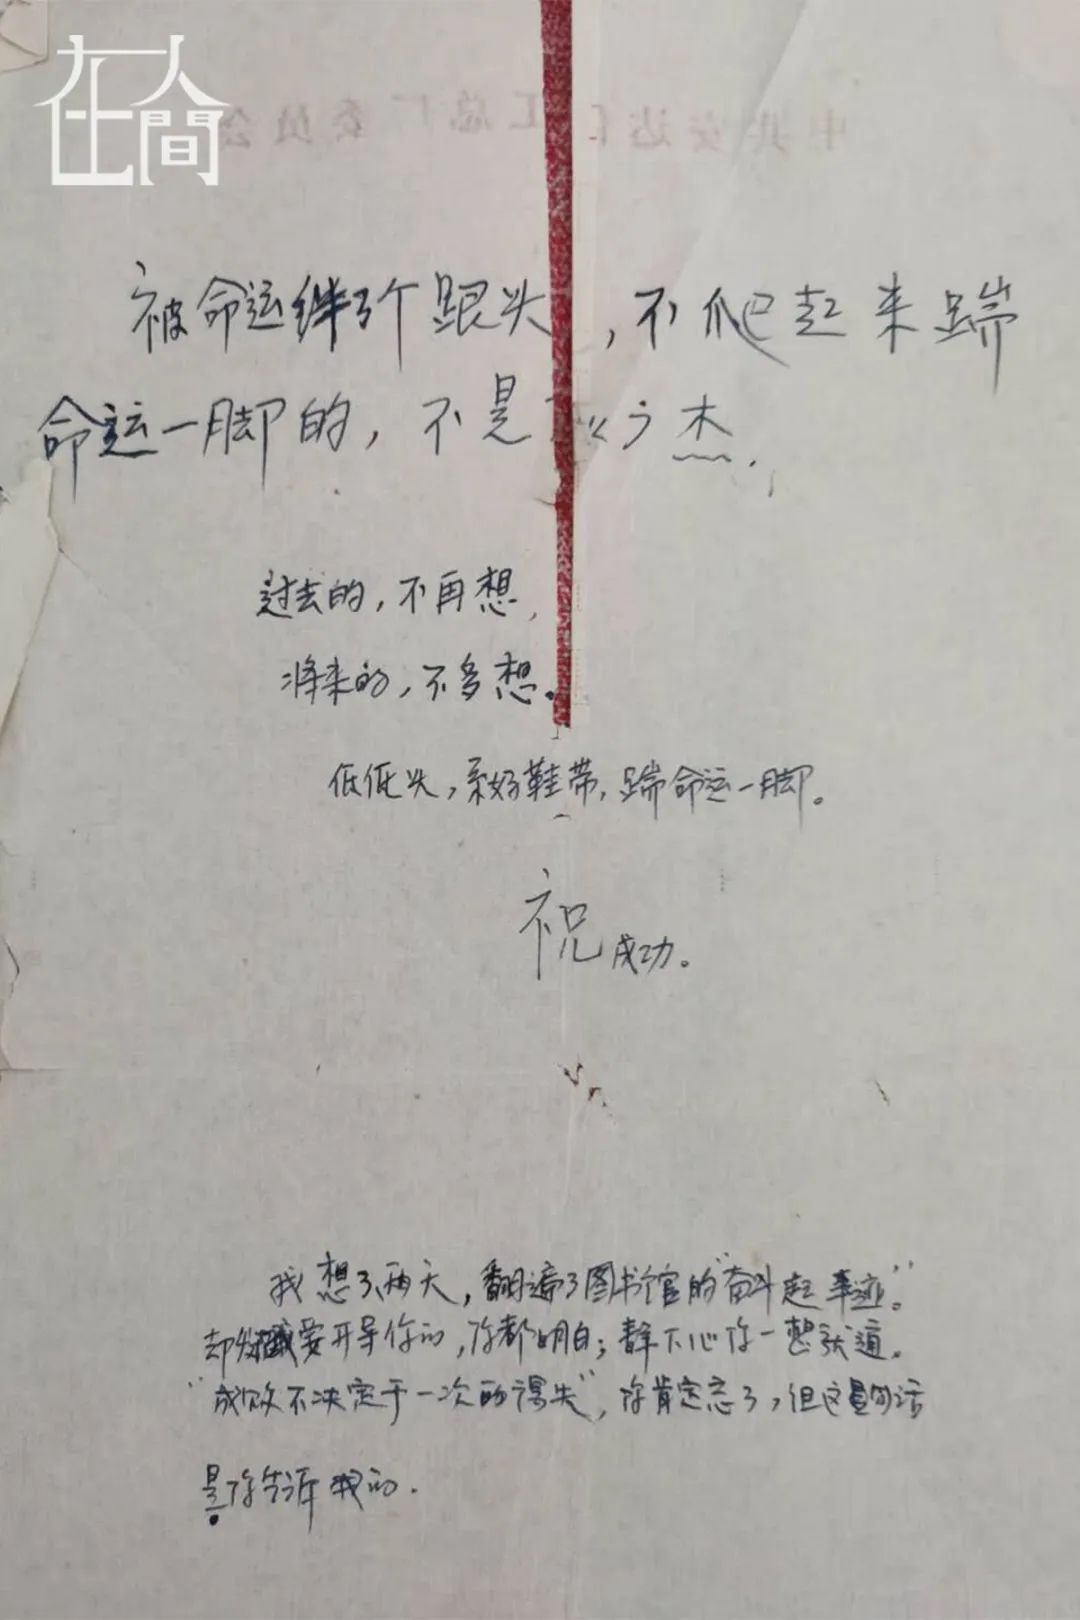 在人間
中共安达 工总厂委员会
被命运绊了个跟头，不爬起来踹
命运一脚的，不是 杰.
过去的，不再想,
将来的，不多想。
低低头，系好鞋带，踹命运一脚。
祝成功。
我想了两天，翻遍了图书馆的“奋斗起事迹”。
却发觉要开导你的，你都明白；静下心你一想就通。
“成败不决定于一次的得失”，你肯定忘了，但这句话
是你告诉我的.